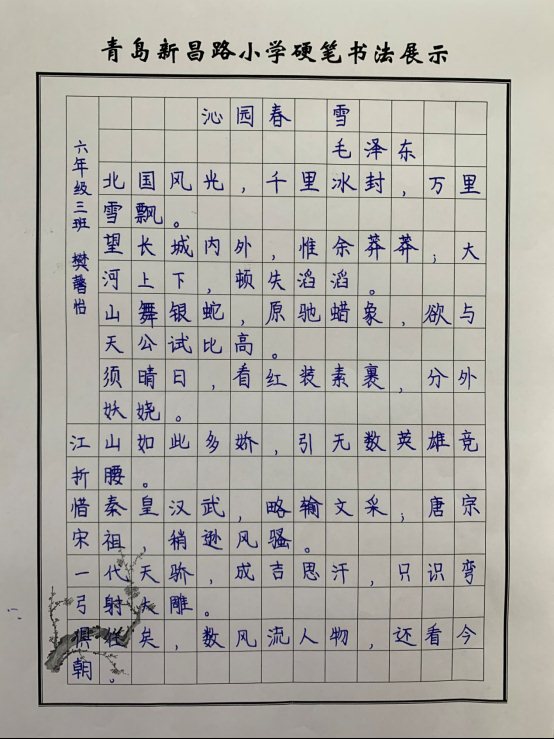 青岛新昌路小学硬笔书法展示
沁园春 雪
毛泽东
六年级三班 樊蕃怡
北国风光,千里冰封,万里
雪飘。
望长城内外,惟余莽莽;大
河上下,顿失滔滔。
山舞银蛇,原驰蜡象,欲与
天公试比高。
须晴日,看红装素裹,分外
妖娆。
江山如此多娇,引无数英雄竞
折腰。
惜秦皇汉武,略输文采;唐宗
宋祖,稍逊风骚。
一代天骄,成吉思汗,只识弯
弓射大雕。
俱往矣,数风流人物,还看今
朝。